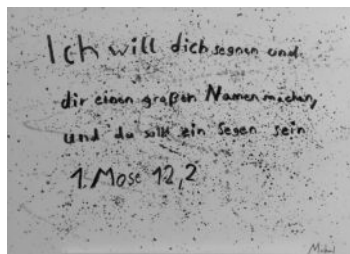 Ich will dich segnen und
dir einen großen Namen machen,
und du sollst ein Segen sein
1. Mose 12,2